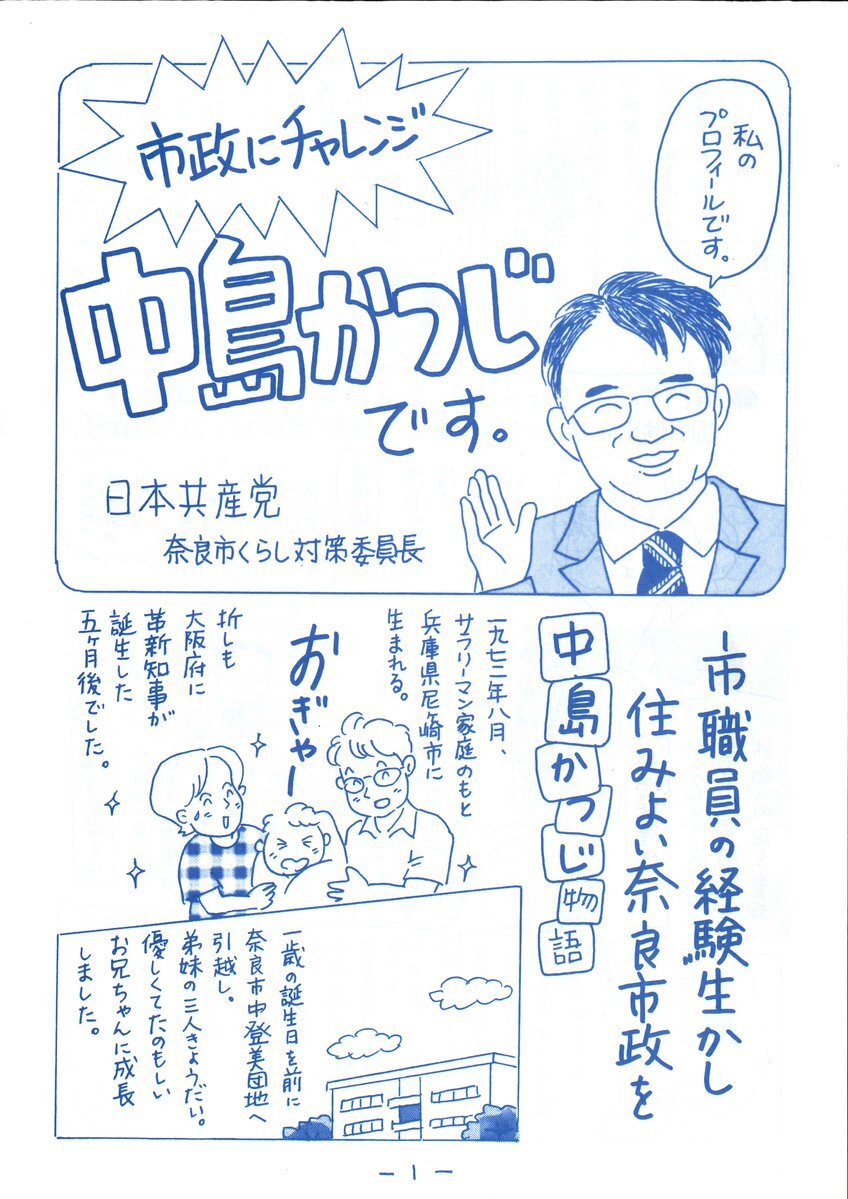 市政にチャレンジ
私の
プロフィールです。
中島かつじ
です。
日本共産党
奈良市くらし対策委員長
市職員の経験生かし
住みよい奈良市政を
中島かつじ物語
一九七二年八月、
サラリーマン家庭のもと
兵庫県尼ヶ崎市に
生まれる。
おぎゃー
折しも
大阪府に
革新知事が
誕生した
五ヶ月後でした。
一歳の誕生日を前に
奈良市中登美団地へ
引越し。
弟妹の三人きょうだい。
優しくてたのもしい
お兄ちゃんに成長
しました。
－1－